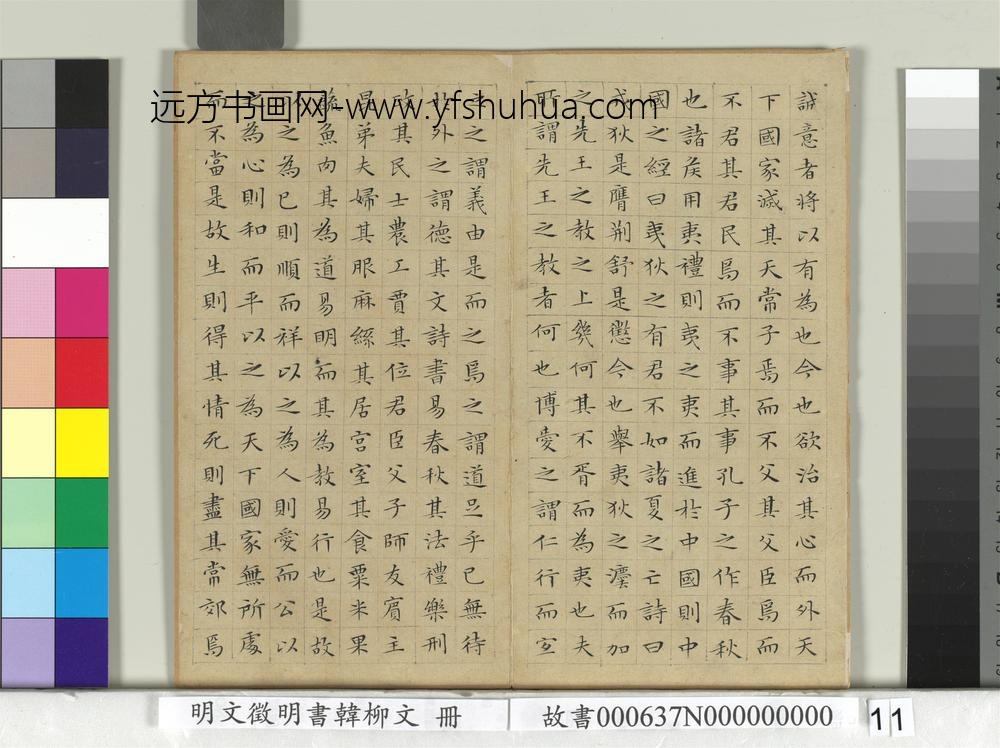 誠意者將以有為也今也欲治其心而外天
下國家滅其天常子焉而不父其父臣焉而
不君其君民焉而不事其事孔子之作春秋
也諸侯用夷禮則夷之夷而進於中國則中
國之經曰夷狄之有君不如諸夏之亡詩曰
戎狄是膺荊舒是懲今也舉夷狄之灋而加
之先王之教之上幾何其不胥而為夷也夫
所謂先王之教者何也博愛之謂仁行而宜
之之謂義由是而之焉之謂道足乎己無待
於外之謂德其文詩書易春秋其法禮樂刑
政其民士農工賈其位君臣父子師友賓主
昆弟夫婦其服麻絲其居宮室其食粟米果
蔬魚肉其為道易明而其為教易行也是故
以之為己則順而祥以之為人則愛而公以
之為心則和而平以之為天下國家無所處
而不當是故生則得其情死則盡其常郊焉
远方书画网-www.yfshuhua.com
明文徵明書韓柳文 冊
故書000637N000000000
11